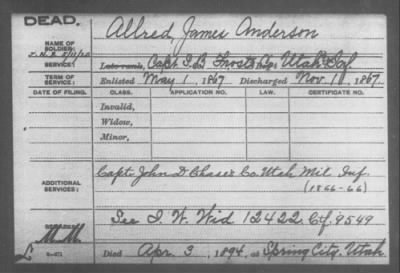 DEAD.
Allred James Anderson
NAME OF SOLDIER:
SERVICE:
Late rank, Capt I.B. Frost's Co. Utah Inf
TERM OF SERVICE:
Enlisted May 1, 1867 Discharged Nov. 10, 1867.
DATE OF FILING. CLASS. APPLICATION NO. LAW. CERTIFICATE NO.
Invalid,
Widow,
Minor,
ADDITIONAL SERVICES:
Capt. John D Chase's Co. Utah Mil. Inf.
(1866-66)
REMARKS:
See I. W. Wid 12422 Ctf. 9549
Died Apr. 3, 1894, at Spring City, Utah.